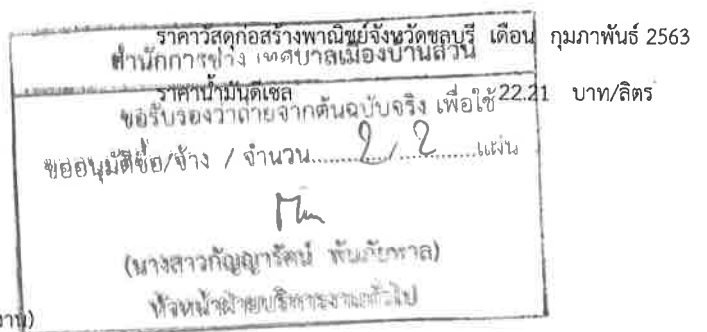 ราคาวัสดุก่อสร้างพาณิชย์จังหวัดชลบุรี เดือน กุมภาพันธ์ 2563
สำนักการช่าง เทศบาลเมืองบ้านสวน
ราคาน้ำมันดีเซล 22.21 บาท/ลิตร
ขอรับรองว่าถ่ายจากต้นฉบับจริง เพื่อใช้
ขออนุมัติซื้อ/จ้าง / จำนวน.......2./...2.......แผ่น
(นางสาวกัญญารัตน์
หัวหน้าฝ่ายบริหารงานทั่วไป
งาน)